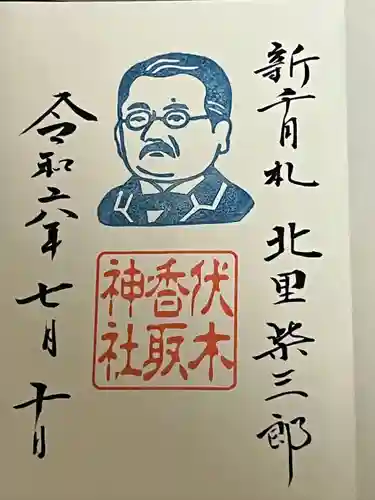 新千円札 北里柴三郎
伏木
香取
神社
令和六年七月十日